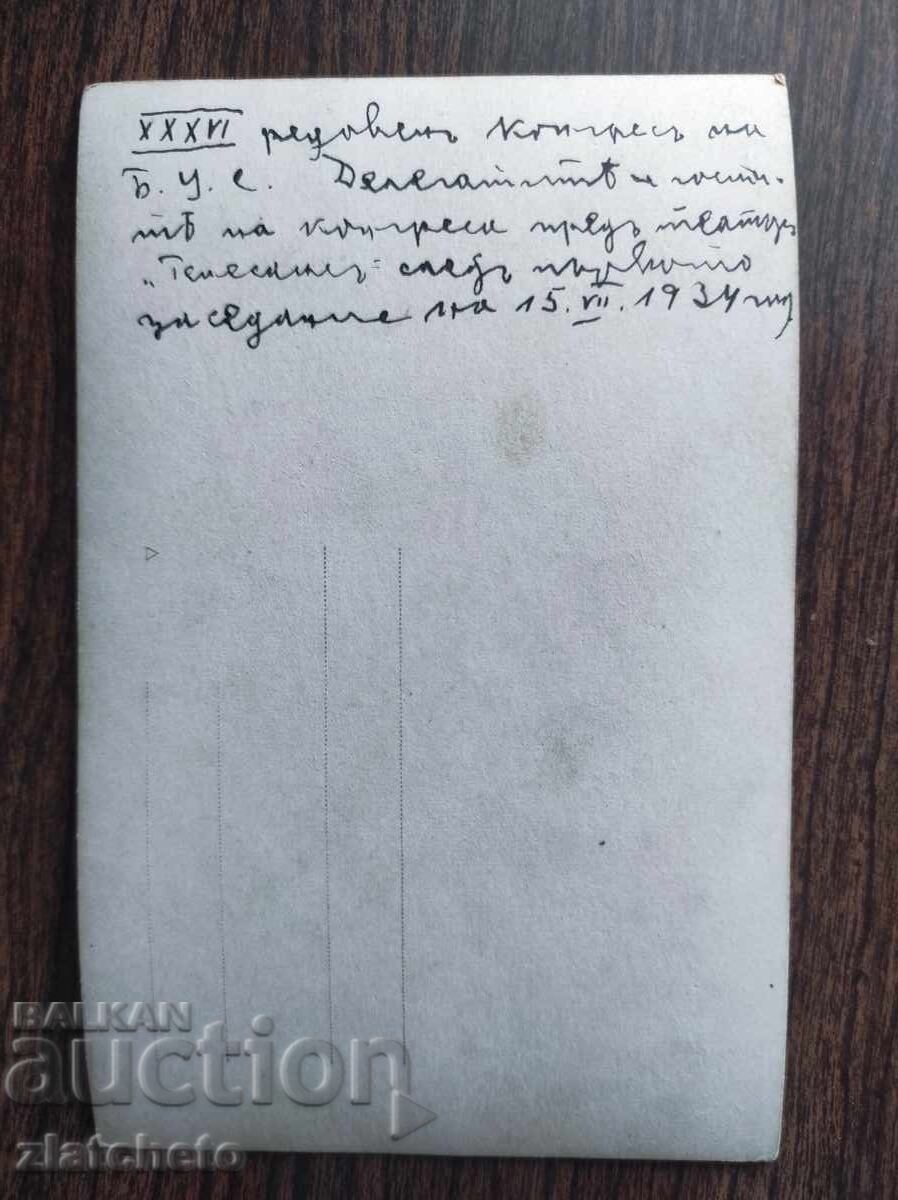 XXXVI редовенъ конгресъ на
Б. У. С. Делегатитѣ и гости-
тѣ на конгреса предъ театъръ
следъ първото
заседание на 15. VII. 1934 год
BALKAN
auction
zlatcheto